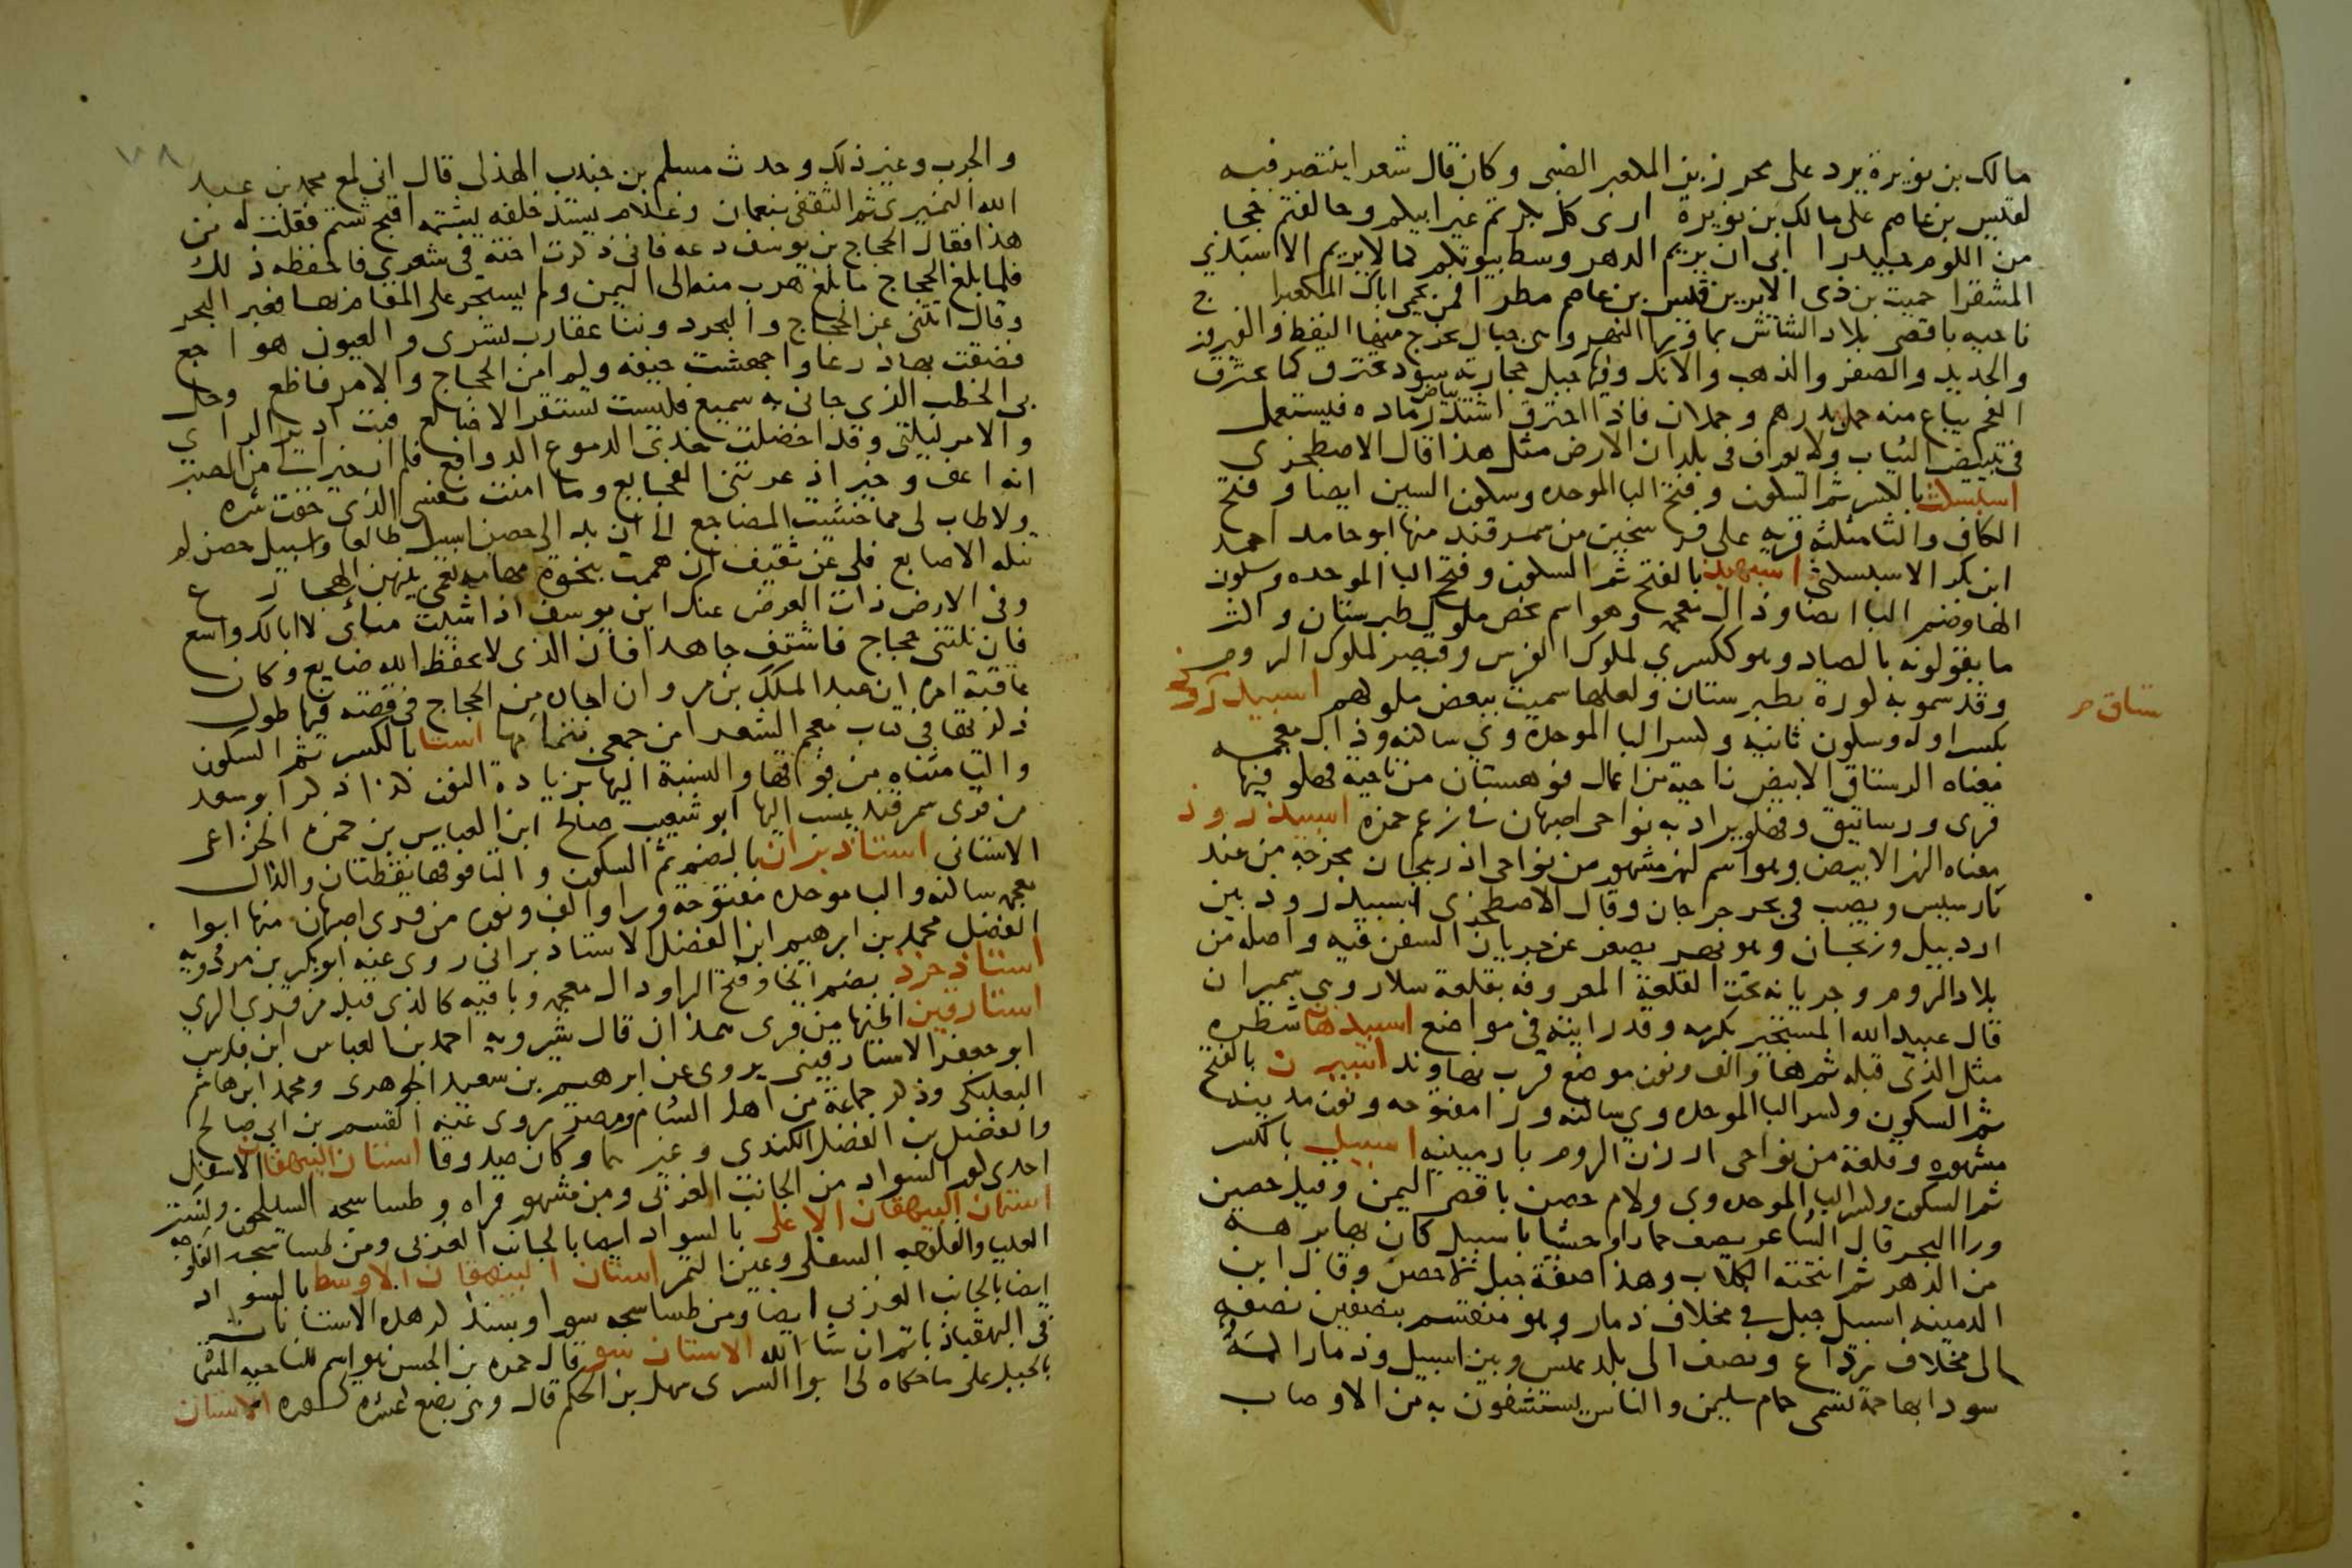 مالك بن نويرة يرد على محرز بن المكعبر الضبي وكان قال شعرا ينتصر فيه
لقيس بن عاصم على مالك بن نويرة ارى كل بكر ثم غير ابيكم وخالفتم حجبا
من اللوم حبيدرا ابى ان يريم الدهر وسط بيوتكم كما لا يريم الاسبذي
المشقرا حميت بن ذي الابرين قيس بن عاصم مطر افمن يحمي اباك المكعبرا
ناحيه باقصى بلاد الشاش بما ورا النهر وهي جبال يخرج منها النفط والفيروزج
والحديد والصفر والذهب والانك وفيها جبل حجارته سود تحترق كما يحترق
الفحم يباع منه حمل بدرهم وحملان فاذا احترق اشتد بياض رماده فيستعمل
في تبييض الثياب ولا يعرف في بلدان الارض مثل هذا قال الاصطخري
اسبسكث بالكسر ثم السكون وفتح البا الموحده وسكون السين ايضا وفتح
الكاف والثا مثلثه قريه على فرسخين من سمرقند منها ابو حامد احمد
ابن بكر الاسبسكثي اسبهبذ بالفتح ثم السكون وفتح البا الموحده وسكون
الها وضم البا ايضا وذال معجمه وهو اسم يخص ملوك طبرستان واكثر
ما يقولونه بالصاد وهو ككسري لملوك الفرس وقيصر لملوك الروم
وقد سمو به كورة بطبرستان ولعلها سميت ببعض ملوكهم اسبيذ
ستاق
بكسر اوله وسكون ثانيه وكسر البا الموحدة وي ساكنه وذال معجمه
معناه الرستاق الابيض ناحيه من اعمال قوهستان من ناحية فهلو فيها
قرى ورساتيق وفهلو يراد به نواحى اصبهان في زعم حمزه اسبيذ روذ
معناه النهر الابيض وهو اسم لنهر مشهور من نواحى اذربيجان مخرجه من عند
بارسيس ويصب في بحر جرجان وقال الاصطخري اسبيذ رود بين
اردبيل وزنجان وهو نهر يصغر عن جريان السفن فيه واصله من
بلاد الروم وجريانه تحت القلعة المعروفه بقلعة سلار وهي سميران
قال عبيد الله المستجير بكرمه وقد رايته في مواضع اسبيذهان شطره
مثل الذي قبله ثم ها والف ونون موضع قرب نهاوند اسبيرن بالفتح
ثم السكون وكسر البا الموحده وي ساكنه ورا مفتوحه ونون مدينه
مشهوره وقلعة من نواحى ارزن الروم بارمينيه اسبيل بالكسر
ثم السكون وكسر البا الموحده وي ولام حصن باقصى اليمن وقيل حصين
ورا البحر قال الشاعر يصف حمارا وحشيا باسبيل كان بها برهه
من الدهر ثم انبحته الكلاب وهذا صفة جبل لا حصن وقال ابن
الدمينه اسبيل جبل في مخلاف ذمار وهو منقسم بنصفين نصفه
الى مخلاف رداع ونصف الى بلد عنس وبين اسبيل وذمار اكمة
سودا بها حمة تسمى حمام سليمن والناس يستشفون به من الاوصاب
والجرب وغير ذلك وحدث مسلم بن جندب الهذلي قال اني لمع محمد بن عبد
الله النميري ثم الثقفي بنعمان وغلام يشتد خلفه يشتمه اقبح شتم فقلت له من
هذا فقال الحجاج بن يوسف دعه فاني ذكرت اخته في شعري فاحفظه ذلك
فلما بلغ الحجاج ما بلغ هرب منه الى اليمن ولم يستجر على المقام بها فعبر البحر
وقال اتتني عن الحجاج والبحر دوننا عقارب تسري والعيون هواجع
فضقت بها ذرعا واجهشت خيفه ولم امن الحجاج والامر فاظع وحل
بي الخطب الذي جاني به سميع فليست تستقر الاضالع فبت ادير الراي
والامر ليلتي وقد اخضلت خدي الدموع الدوافع فلم ار خيرا لي من الصبر
انه اعف وخير اذ عرتني الفجايع وما امنت نفسي الذي خفت شره
ولا طاب لي مما خشيت المضاجع الى ان بدا لي حصن اسبيل طالعا واسبيل حصن لم
تنله الاصابع فلي عن ثقيف ان هممت بنجوة مهامه تعمى بينهن الهجارع
وفي الارض ذات العرض عنك ابن يوسف اذا شيت مناى لا ابا لك واسع
فان نلتني حجاج فاشتف جاهدا فان الذي لا يحفظ الله ضايع وكان
عاقبة امره ان عبد الملك بن مروان اجاره من الحجاج في قصته فيها طول
ذكرتها في كتاب معجم الشعرا من جمعي بتمامها استا بالكسر ثم السكون
والتا مثناه من فوقها والنسبة اليها بزيادة النون كذا ذكر ابو سعد
من قرى سمرقند ينسب اليها ابو شعيب صالح ابن العباس بن حمزه الخزاعي
الاستاني استاذبران بالضم ثم السكون والتا فوقها نقطتان والذال
معجمه ساكنه والبا موحده مفتوحه ورا والف ونون من قرى اصبهان منها ابوا
الفضل محمد بن ابرهيم ابن الفضل الاستاذبراني روى عنه ابو بكر بن مردويه
استاذخرذ بضم الخا وفتح الرا وذال معجمه وباقيه كالذي قبله من قرى الري
استارقين اظنها من قرى همذان قال شيرويه احمد بن العباس ابن فارس
ابو جعفر الاستارقيني يروى عن ابرهيم بن سعيد الجوهرى ومحمد ابن هاشم
البعلبكي وذكر جماعة من اهل الشام ومصر يروى عنه القسم بن ابي صالح
والفضل بن الفضل الكندي وغيرهما وكان صدوقا استان البهقباذ الاسفل
احدى كور السواد من الجانب الغربي ومن مشهور قراه وطساسيجه السيلحون وتستر
استان البهقباذ الاعلى بالسواد ايضا بالجانب الغربي ومن طساسيجه الفلوجه
العليا والفلوجه السفلى وعين التمر استان البهقباذ الاوسط بالسواد
ايضا بالجانب الغربي ايضا ومن طساسيجه سورا وسنذكر هذه الاستانات
في البهقباذ باتم ان شا الله الاستان سو قال حمزه بن الحسن هو اسم للناحيه المسما
بالجبل على ما حكاه لي ابوا السري سهل بن الحكم قال وهي بضع عشره كوره الاستان